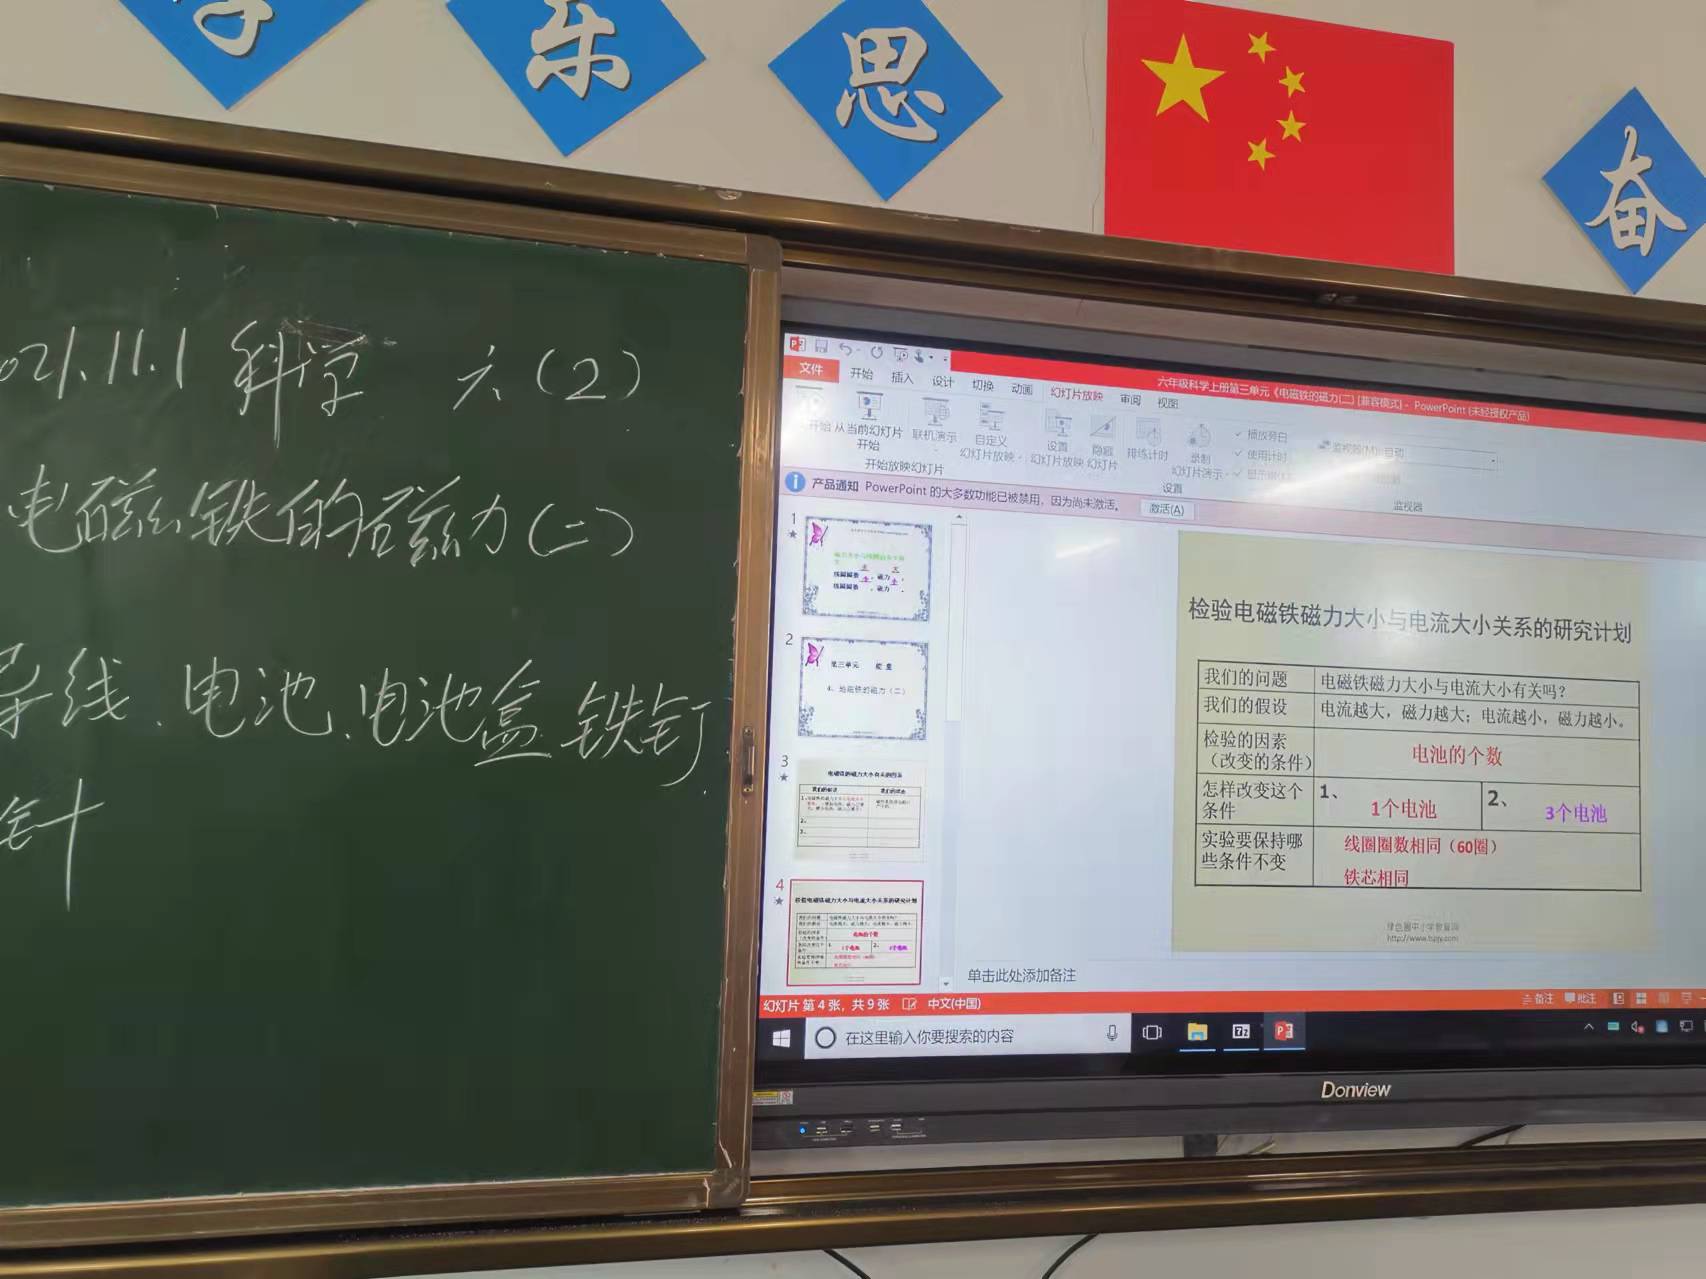 学 乐 思 奋
021.11.1 科学 六（2）
电磁铁的磁力（二）
导线、电池、电池盒 铁钉
针
六年级科学上册第三单元《电磁铁的磁力(二) [兼容模式] - PowerPoint (未经授权产品)
文件 开始 插入 设计 切换 动画 幻灯片放映 审阅 视图
从当前幻灯片开始 联机演示 自定义幻灯片放映 设置幻灯片放映 隐藏幻灯片 排练计时 录制幻灯片演示
播放旁白
使用计时
监视器(M): 自动
开始放映幻灯片 设置 监视器
产品通知 PowerPoint 的大多数功能已被禁用，因为尚未激活。 激活(A)
1
线圈圈数 多，磁力 大。
线圈圈数 ，磁力 。
2
第三单元 能量
4、电磁铁的磁力（二）
3
电磁铁的磁力大小有关的因素
4
检验电磁铁磁力大小与电流大小关系的研究计划
检验电磁铁磁力大小与电流大小关系的研究计划
我们的问题 电磁铁磁力大小与电流大小有关吗？
我们的假设 电流越大，磁力越大；电流越小，磁力越小。
检验的因素（改变的条件） 电池的个数
怎样改变这个条件 1、 1个电池 2、 3个电池
实验要保持哪些条件不变 线圈圈数相同（60圈）
铁芯相同
绿色圃中小学教育网
http://www.lspjy.com
单击此处添加备注
幻灯片 第 4 张，共 9 张 中文(中国) 备注 批注
在这里输入你要搜索的内容
Donview